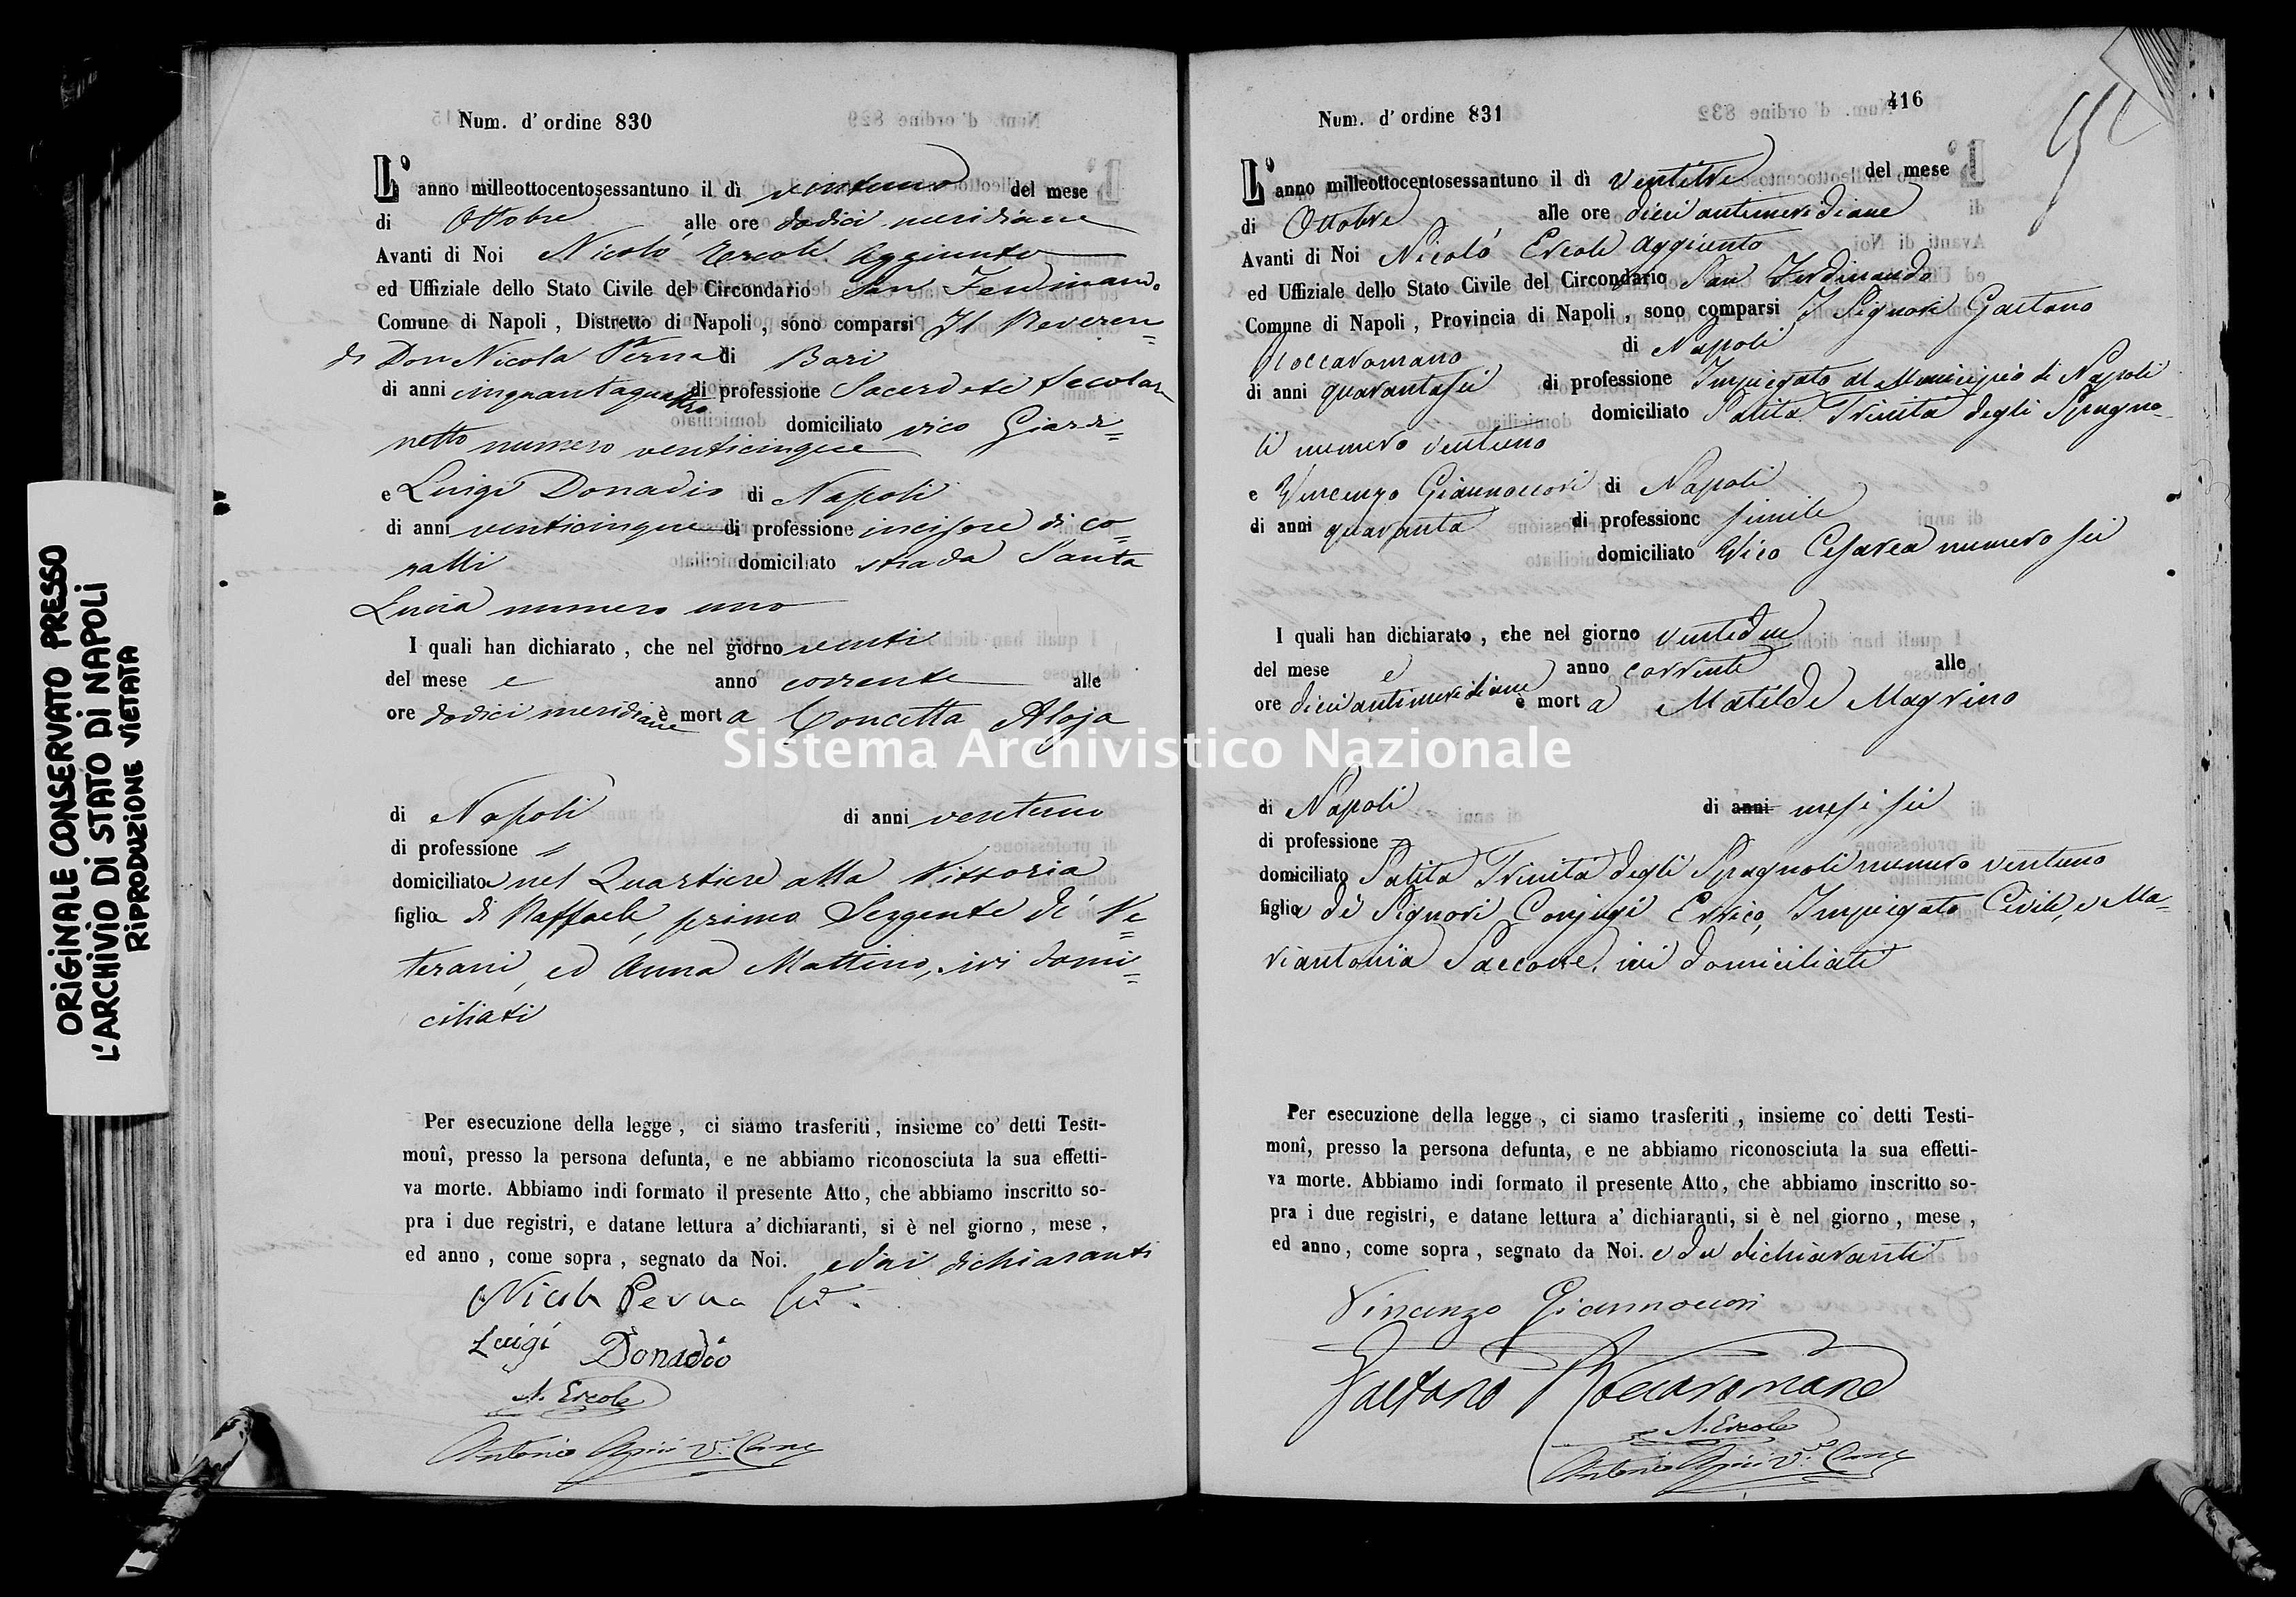 ORIGINALE CONSERVATO PRESSO
L'ARCHIVIO DI STATO DI NAPOLI
RIPRODUZIONE VIETATA
Num. d'ordine 830
L'anno milleottocentosessantuno il dì ventuno del mese
di Ottobre alle ore dodici meridiane
Avanti di Noi Nicolò Ercole Aggiunto
ed Uffiziale dello Stato Civile del Circondario San Ferdinando
Comune di Napoli, Distretto di Napoli, sono comparsi Il Reveren=
do Don Nicola Perna di Bari
di anni cinquantaquattro di professione Sacerdote Secolare
domiciliato vico Giardi=
netto numero venticinque
e Luigi Donadio di Napoli
di anni venticinque di professione incisore di co=
ralli domiciliato strada Santa
Lucia numero uno
I quali han dichiarato, che nel giorno venti
del mese e anno corrente alle
ore dodici meridiane è morta Concetta Aloja
di Napoli di anni ventuno
di professione "
domiciliata nel Quartiere alla Vittoria
figlia di Raffaele, primo Sergente de' Ve=
terani, ed Anna Mattino, ivi domi=
ciliati
Per esecuzione della legge, ci siamo trasferiti, insieme co' detti Testi-
monî, presso la persona defunta, e ne abbiamo riconosciuta la sua effetti-
va morte. Abbiamo indi formato il presente Atto, che abbiamo inscritto so-
pra i due registri, e datane lettura a' dichiaranti, si è nel giorno, mese,
ed anno, come sopra, segnato da Noi. e dai dichiaranti
Nicola Perna
Luigi Donadio
N. Ercole
Antonio
416
Num. d'ordine 831
L'anno milleottocentosessantuno il dì ventitre del mese
di Ottobre alle ore dieci antimeridiane
Avanti di Noi Nicolò Ercole Aggiunto
ed Uffiziale dello Stato Civile del Circondario San Ferdinando
Comune di Napoli, Provincia di Napoli, sono comparsi I Signori Gaetano
Roccaromano di Napoli
di anni quarantasei di professione Impiegato al Municipio di Napoli
domiciliato Salita Trinità degli Spagno=
li numero ventuno
e Vincenzo Giannoccori di Napoli
di anni quaranta di professione simile
domiciliato Vico Cesarea numero sei
I quali han dichiarato, che nel giorno ventidue
del mese e anno corrente alle
ore dieci antimeridiane è morta Matilde Magrino
di Napoli di anni mesi sei
di professione =
domiciliato Salita Trinità degli Spagnoli numero ventuno
figlia dei Signori Conjugi Errico, Impiegato Civile, e Ma=
riantonia Saccone, ivi domiciliati
Per esecuzione della legge, ci siamo trasferiti, insieme co' detti Testi-
monî, presso la persona defunta, e ne abbiamo riconosciuta la sua effetti-
va morte. Abbiamo indi formato il presente Atto, che abbiamo inscritto so-
pra i due registri, e datane lettura a' dichiaranti, si è nel giorno, mese,
ed anno, come sopra, segnato da Noi. e dai dichiaranti
Vincenzo Giannoccori
Gaetano Roccaromano
N. Ercole
Antonio
Sistema Archivistico Nazionale